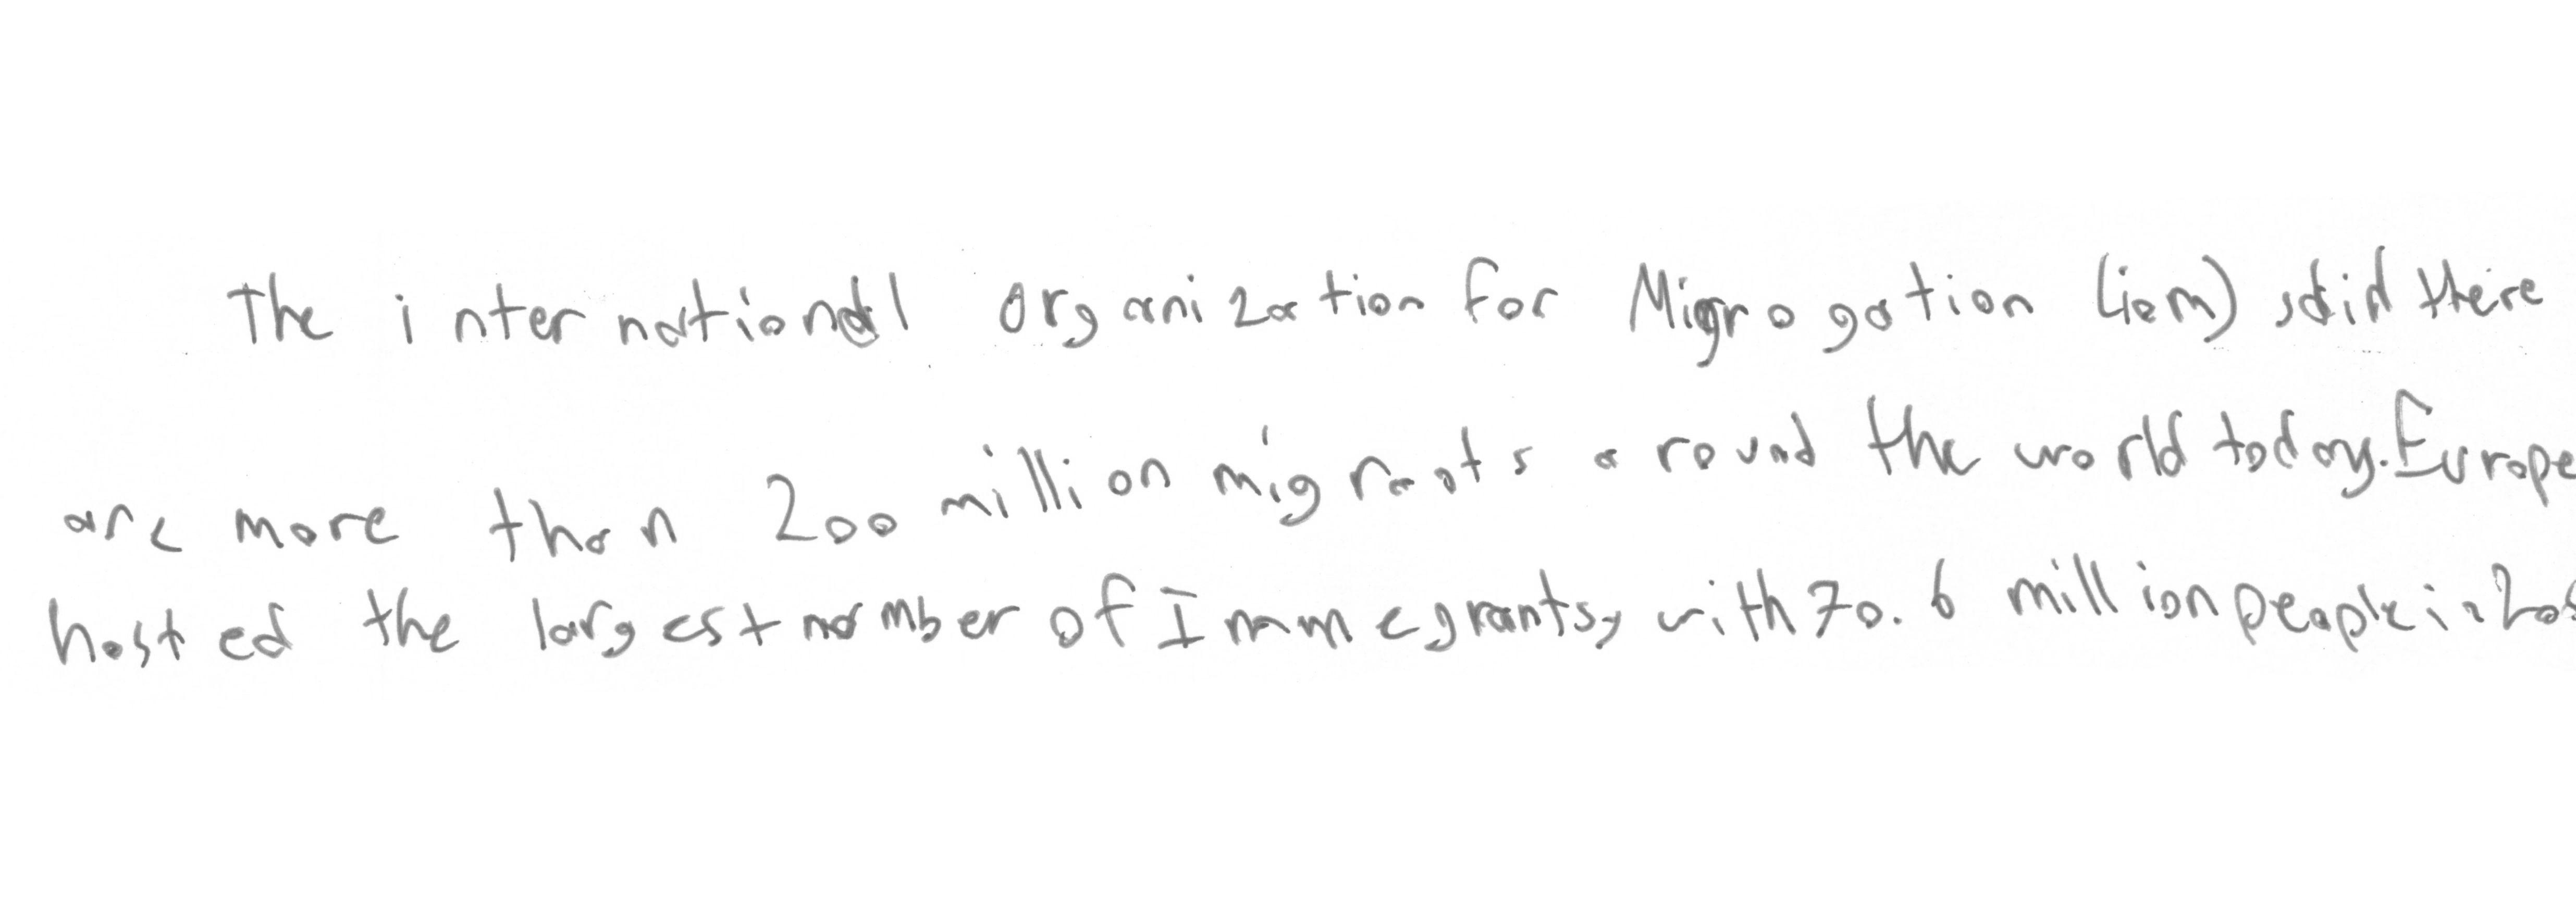 The international Organization for Migrogation (iom) said there
are more than 200 million migrants around the world today. Europe
hosted the largest nomber of Immegrants, with 70.6 million people in